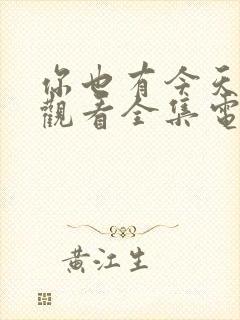 你也有今天
觀看全集電
黃江生